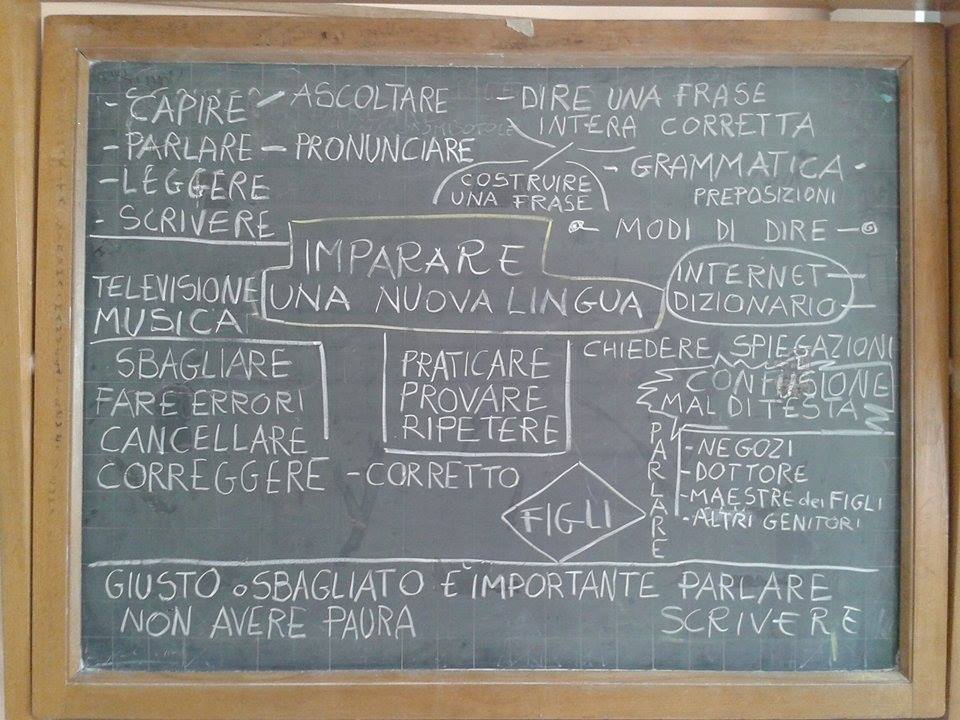 - CAPIRE - ASCOLTARE
- PARLARE - PRONUNCIARE
- LEGGERE
- SCRIVERE
- DIRE UNA FRASE
INTERA CORRETTA
COSTRUIRE
UNA FRASE
- GRAMMATICA -
PREPOSIZIONI
MODI DI DIRE
IMPARARE
UNA NUOVA LINGUA
TELEVISIONE
MUSICA
INTERNET
DIZIONARIO
SBAGLIARE
FARE ERRORI
CANCELLARE
CORREGGERE - CORRETTO
PRATICARE
PROVARE
RIPETERE
CHIEDERE SPIEGAZIONI
CONFUSIONE
MAL DI TESTA
PARLARE
- NEGOZI
- DOTTORE
- MAESTRE dei FIGLI
- ALTRI GENITORI
FIGLI
GIUSTO o SBAGLIATO È IMPORTANTE PARLARE
NON AVERE PAURA SCRIVERE